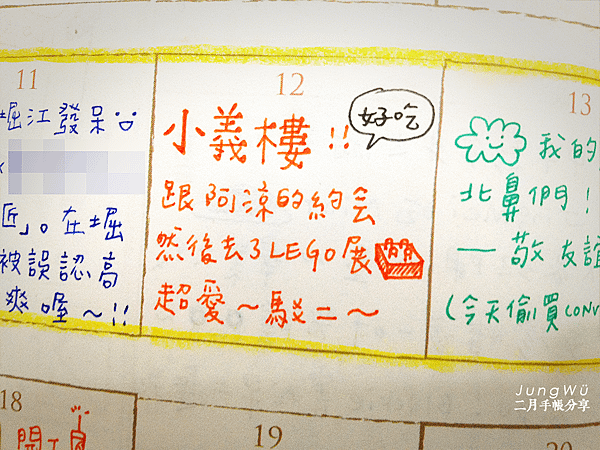 11
堀江發呆
匠」。在堀
被誤認高
爽喔～!!
12
小義樓!!
好吃
跟阿涼的約会
然後去了LEGO展
超愛～駁二～
13
我的
北鼻們!
—敬友誼
(今天偷買CONV
18
開工
19
20
JungWü
二月手帳分享